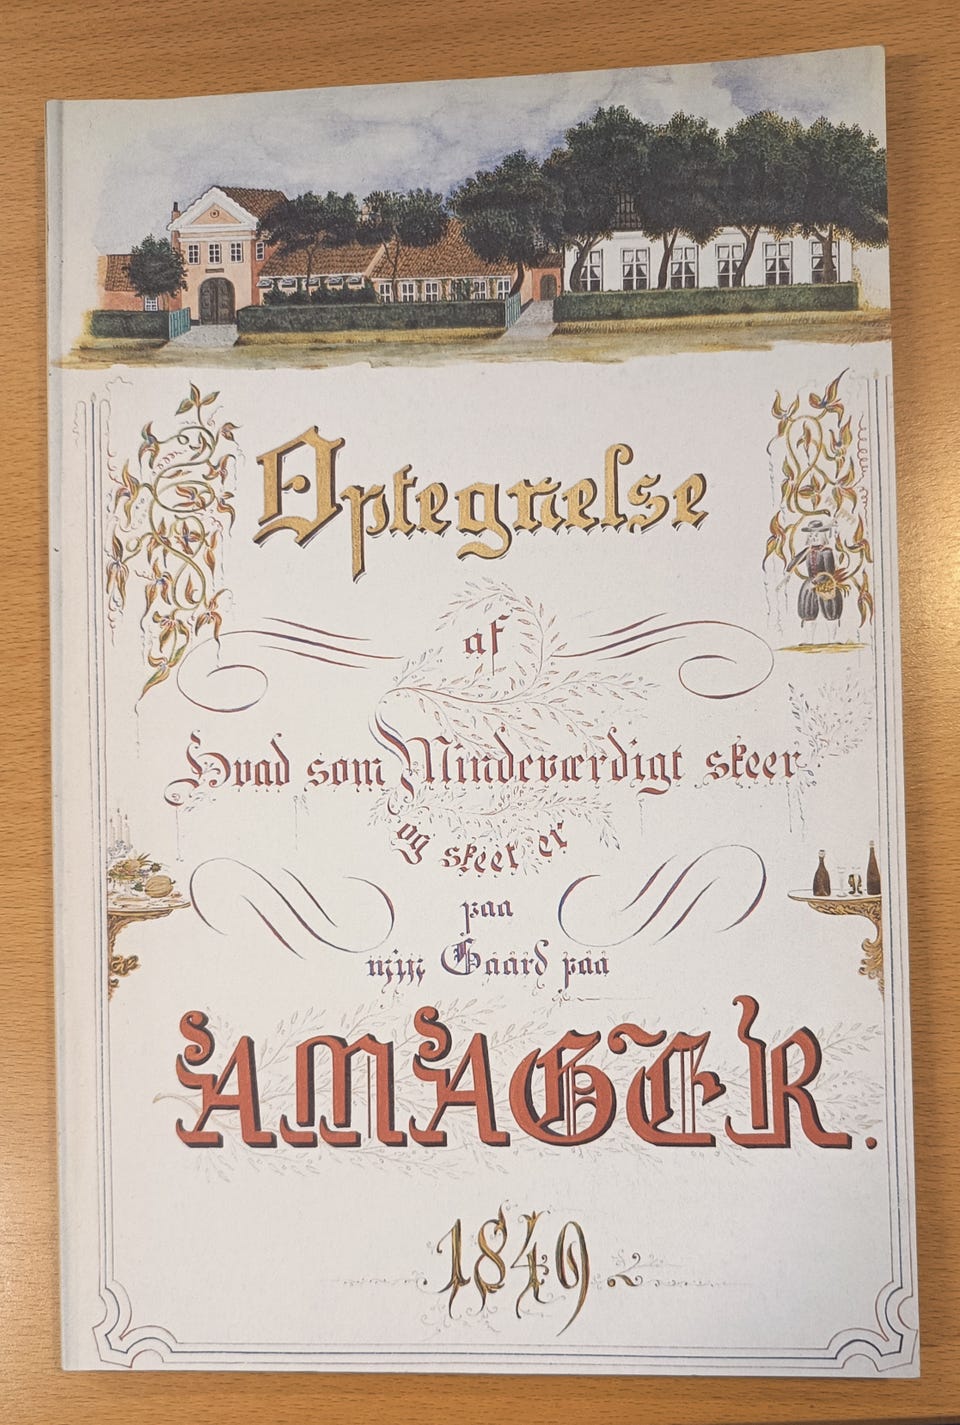 Optegnelse
af
Hvad som Mindeværdigt skeer
og skeet er
paa
min Gaard paa
AMAGER.
1849.